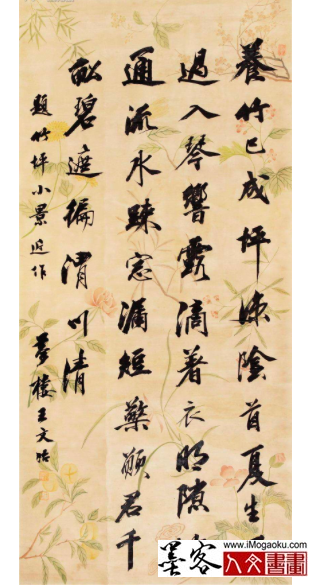 養竹已成坪涼陰首夏生
過入琴響露滴著衣明隙
通流水疎窓漏短檠願君千
畝碧遮徧渭川清
題竹坪小景近作
夢樓王文治
墨客
www.iMogaoku.com
人文書畫